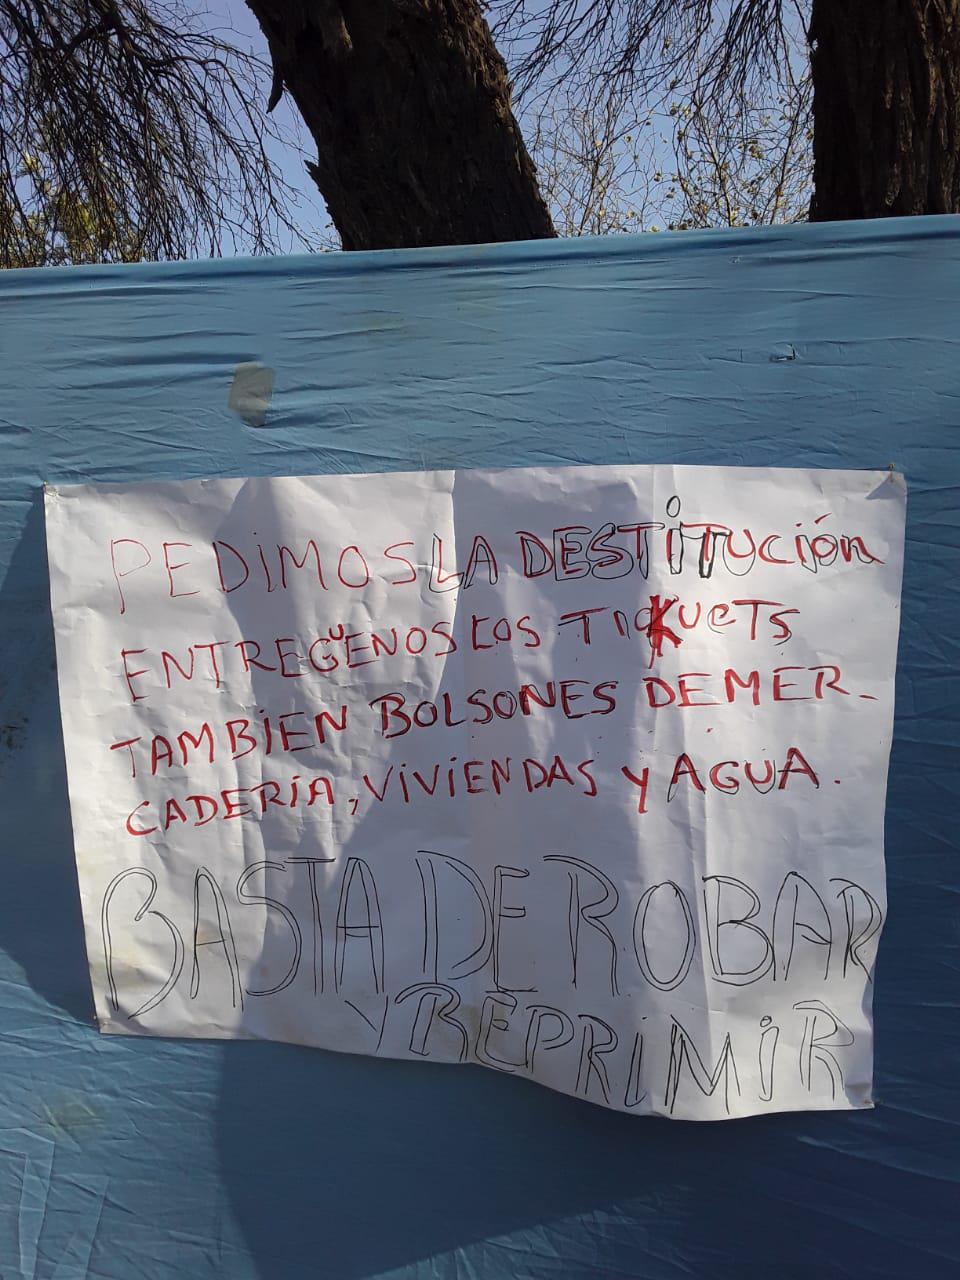 PEDiMOS LA DESTiTUción
ENTREGUENOS LOS TIKUeTS
TAMBiEN BOLSONES DE MER-
CADERiA, ViViENDAS Y AGUA.
BASTA DE ROBAR
Y REPRiMiR